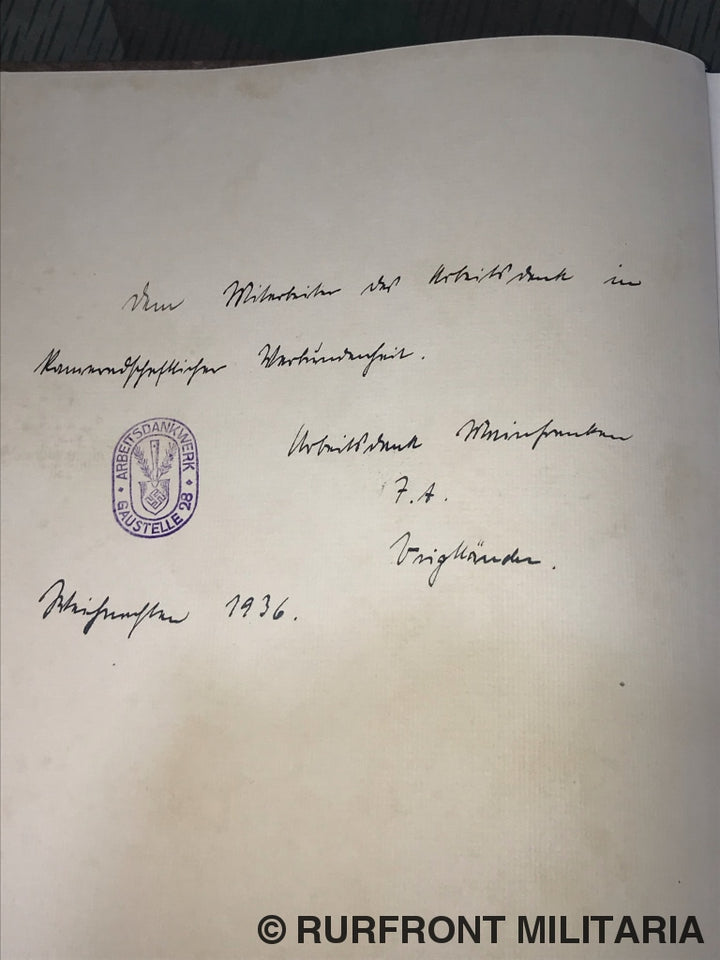 Dem Mitarbeiter des Arbeitsdank in
kameradschaftlicher Verbundenheit.
Arbeitsdank Mainfranken
I.A.
Voigtländer.
ARBEITSDANKWERK
GAUSTELLE 28
Weihnachten 1936.
© RURFRONT MILITARIA